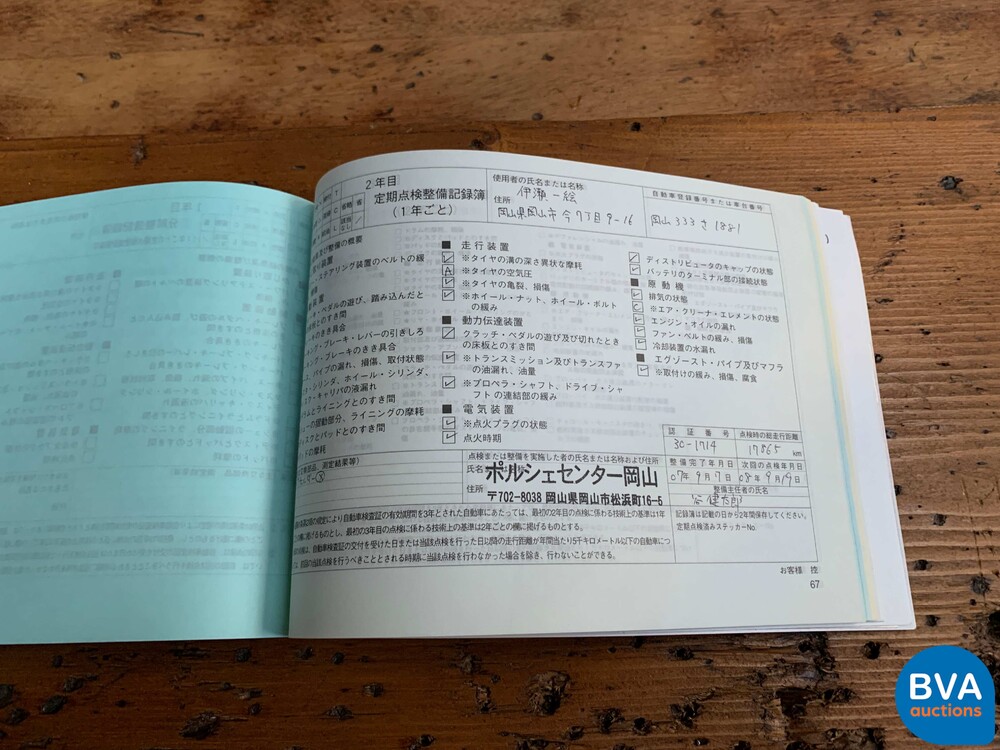 2年目
定期点検整備記録簿
（1年ごと）
使用者の氏名または名称
伊瀬一絵
住所
岡山県岡山市今7丁目9-16
自動車登録番号または車台番号
岡山333さ1881
点検及び整備の概要
ステアリング装置のベルトの緩
ペダルの遊び、踏み込んだと
床板とのすき間
ブレーキのきき具合
ブレーキ・レバーの引きしろ
ブレーキのきき具合
パイプの漏れ、損傷、取付状態
シリンダ、ホイール・シリンダ、
キャリパの液漏れ
ムとライニングとのすき間
の摺動部分、ライニングの摩耗
とパッドとのすき間
の摩耗
■ 走行装置
※タイヤの溝の深さ異状な摩耗
※タイヤの空気圧
※タイヤの亀裂、損傷
※ホイール・ナット、ホイール・ボルト
の緩み
■ 動力伝達装置
クラッチ・ペダルの遊び及び切れたとき
の床板とのすき間
※トランスミッション及びトランスファ
の油漏れ、油量
※プロペラ・シャフト、ドライブ・シャ
フトの連結部の緩み
■ 電気装置
※点火プラグの状態
点火時期
ディストリビュータのキャップの状態
バッテリのターミナル部の接続状態
■ 原動機
排気の状態
※エア・クリーナ・エレメントの状態
エンジン・オイルの漏れ
ファン・ベルトの緩み、損傷
冷却装置の水漏れ
■ エグゾースト・パイプ及びマフラ
※取付けの緩み、損傷、腐食
部品、測定結果等）
点検または整備を実施した者の氏名または名称および住所
氏名
ポルシェセンター岡山
住所
〒702-8038 岡山県岡山市松浜町16-5
認証番号
点検時の総走行距離
3C-1714
17865 km
整備完了年月日
次回の点検年月日
07年9月9日
08年9月19日
整備主任者の氏名
谷健太郎
記録簿は記載の日から2年間保存してください。
定期点検済みステッカーNo.
の規定により自動車検査証の有効期間を3年とされた自動車にあたっては、最初の2年目の点検に係わる技術上の基準は1年
に掲げるものとし、最初の3年目の点検に係わる技術上の基準は2年ごとの欄に掲げるものとする。
は、自動車検査証の交付を受けた日または当該点検を行った日以降の走行距離が年間当り5千キロメートル以下の自動車につ
前回の当該点検を行うべきこととされる時期に当該点検を行わなかった場合を除き、行わないことができる。
お客様 控
67
BVA
auctions